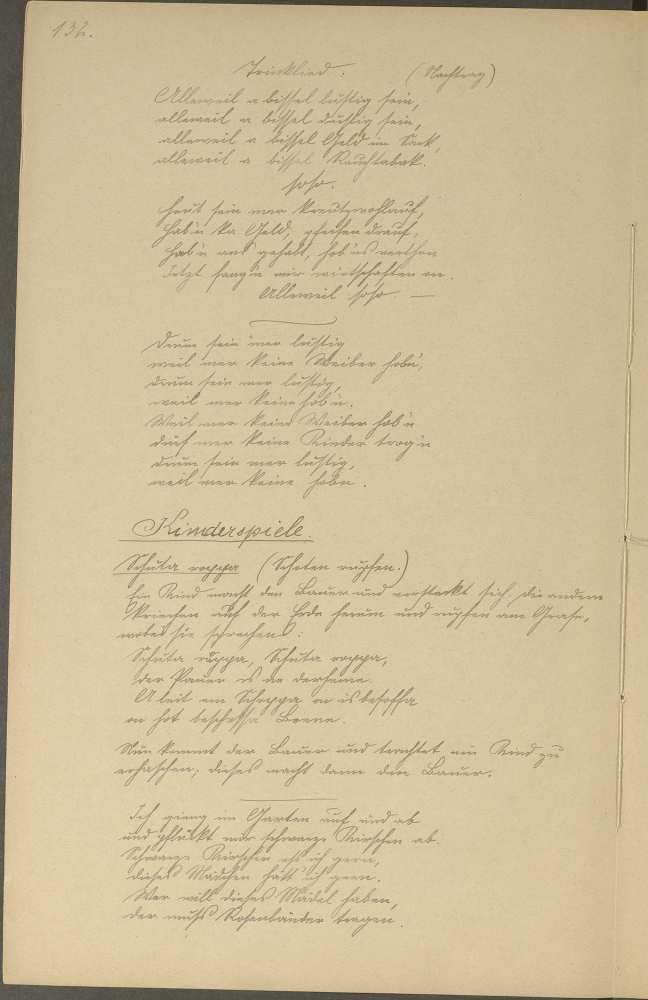 132.
Trinklied. (Nachtrag)
Alleweil a bissel lustig sein,
alleweil a bissel durstig sein,
alleweil a bissel Geld im Sack,
alleweil a bissel Rauchtabak.
soso.
Heut sein mer kreuzwohlauf,
Hab'n ka Geld, pfeifen drauf,
Hab'n ans gehabt, hob'ns verthon
Jetzt fang'n mir wirtschaften on.
Alleweil soso. —
Drum sein mer lustig
weil mer keine Weiber hobn,
drum sein mer lustig,
weil mer keine hob'n.
Weil mer keine Weiber hob'n
durf mer keine Kinder trog'n
drum sein mer lustig,
weil mer keine hobn.
Kinderspiele.
Schuta roppa (Schoten rupfen.)
Ein Kind macht den Bauer und versteckt sich, die andern
kriechen auf der Erde herum und rupfen am Grase,
wobei sie sprechen:
Schuta roppa, Schuta roppa,
der Pauer is ne derheme.
A leit em Schoppa on is besoffa
on hot beschessa Beene.
Nun kommt der Bauer und trachtet ein Kind zu
erhaschen; dieses macht dann den Bauer.
Ich gieng im Garten auf und ab
und pflückt mir schwarze Kirschen ab.
Schwarze Kirschen ess ich gern,
dieses Mädchen hätt' ich gern.
Wer will dieses Mädel haben,
der muß Rosenbänder tragen.